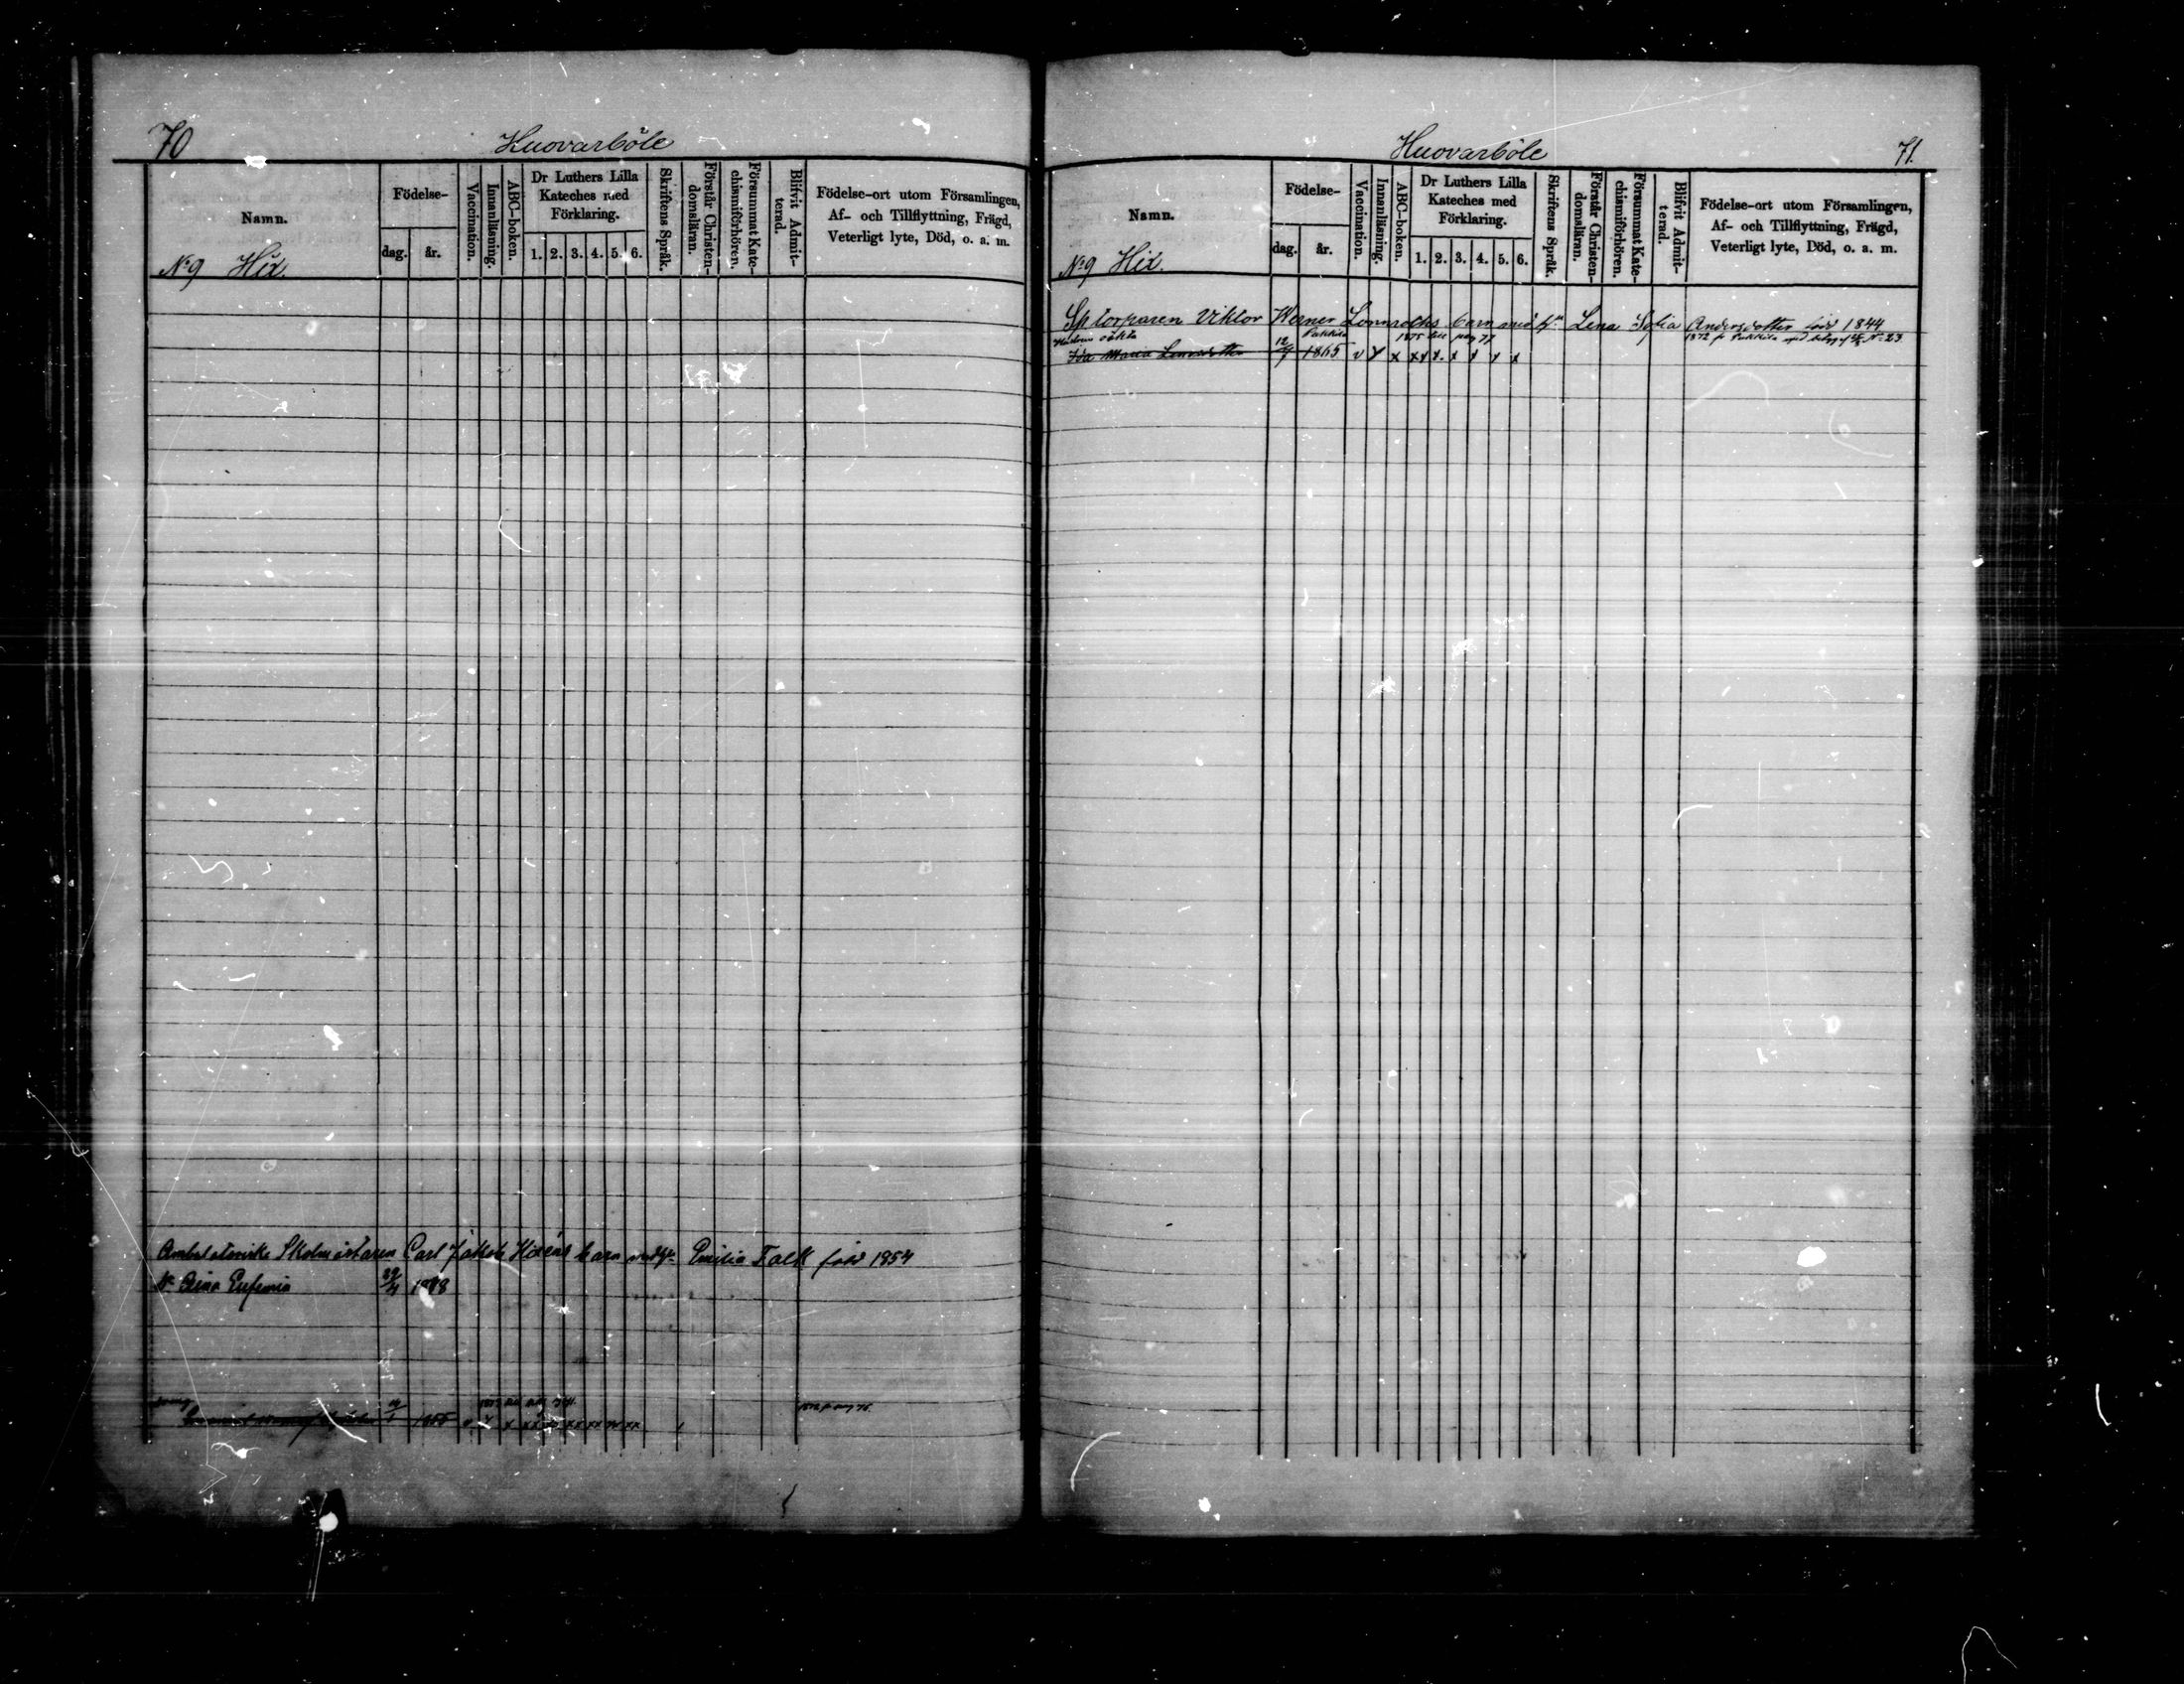 70
Huovarböle
Namn.
Födelse-
dag.
år.
Vaccination.
Innanläsning.
ABC-boken.
Dr Luthers Lilla
Kateches med
Förklaring.
1. 2. 3. 4. 5. 6.
Skriftens Språk.
Förstår Christen-
domsläran.
Försummat Kate-
chismiförhören.
Blifvit Admit-
terad.
Födelse-ort utom Församlingen,
Af- och Tillflyttning, Frägd,
Veterligt lyte, Död, o. a. m.
No 9 Hix.
Skolmästaren Carl Jakob Hixens barn med hu Emilia Falk född 1854
Aina Eufemia
1855
Huovarböle
71.
Namn.
Födelse-
dag.
år.
Vaccination.
Innanläsning.
ABC-boken.
Dr Luthers Lilla
Kateches med
Förklaring.
1. 2. 3. 4. 5. 6.
Skriftens Språk.
Förstår Christen-
domsläran.
Försummat Kate-
chismiförhören.
Blifvit Admit-
terad.
Födelse-ort utom Församlingen,
Af- och Tillflyttning, Frägd,
Veterligt lyte, Död, o. a. m.
No 9 Hix.
Sptorparen Viktor Werner Lönnroths barn med hu Lena Sofia Andersdotter född 1844
oäkta 1875 till pag 77 1872 fr
Ida Maria 12/7 1865 v x x xx x x x x x